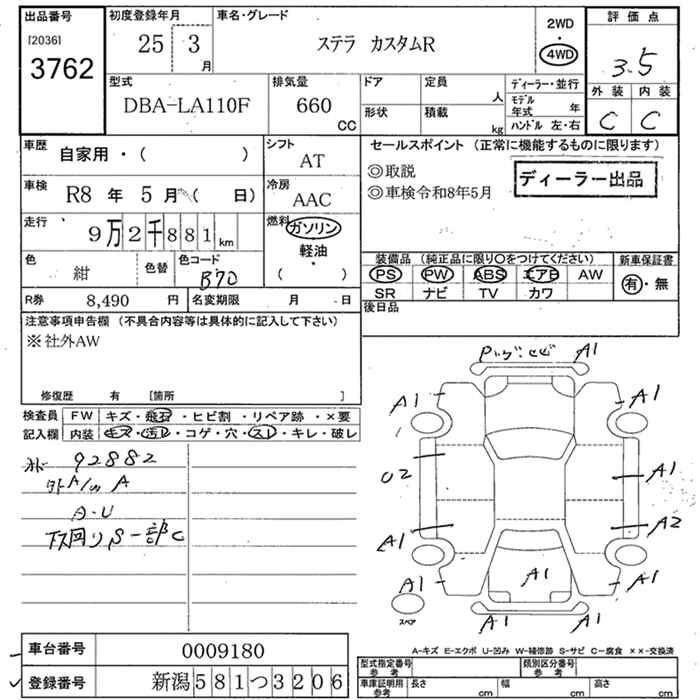 出品番号 初度登録年月 車名・グレード 2WD 評価点
[2036] 25 3 月 ステラ カスタムR ・ 4WD 3.5
3762 外装 内装
型式 排気量 ドア 定員 人 ディーラー・並行 C C
DBA-LA110F 660 CC 形状 積載 kg モデル年式 年
ハンドル 左・右
車歴 自家用・( ) シフト AT セールスポイント (正常に機能するものに限ります)
◎取説 ディーラー出品
車検 R8 年 5 月 ( 日) 冷房 AAC ◎車検令和8年5月
走行 9万2千881km 燃料 ガソリン
軽油
・
( )
色 紺 色替 色コード B70 装備品 (純正品に限り〇をつけてください) 新車保証書
PS PW ABS エアB AW 有・無
R券 8,490 円 名変期限 月 日 SR ナビ TV カワ
注意事項申告欄 (不具合内容等は具体的に記入して下さい) 後日品
※社外AW
修復歴 有 [箇所 ]
検査員 FW キズ・飛石・ヒビ割・リペア跡・×要
記入欄 内装 キズ・汚レ・コゲ・穴・スレ・キレ・破レ
92882
外A/W A
A-U
下回りS一部C
A1
A1 A1
U2 A1
A1 A2
A1 A1 A1
スペア
A1 A1
A-キズ E-エクボ U-凹み W-補修跡 S-サビ C-腐食 ××-交換済
車台番号 0009180 型式指定番号 参考 類別区分番号 参考
登録番号 新潟581つ3206 車庫証明用 参考 長さ cm 幅 cm 高さ cm